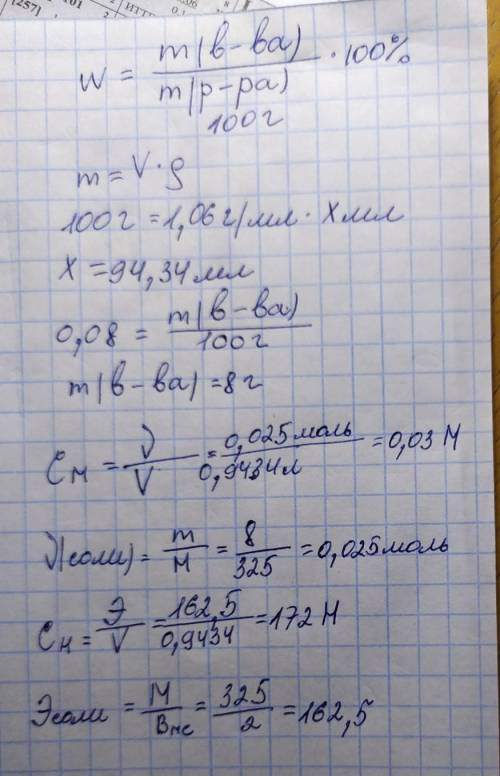 [257] 101 2 ИТТ 0.1 8
w = m(в-ва) / m(р-ра) · 100%
100г
m = V · ρ
100г = 1,06г/мл · Xмл
X = 94,34мл
0,08 = m(в-ва) / 100г
m(в-ва) = 8г
Cм = ν / V = 0,025моль / 0,9434л = 0,03 М
ν(соли) = m / М = 8 / 325 = 0,025моль
Cн = Э / V = 162,5 / 0,9434 = 172 Н
Эсоли = М / Вмс = 325 / 2 = 162,5